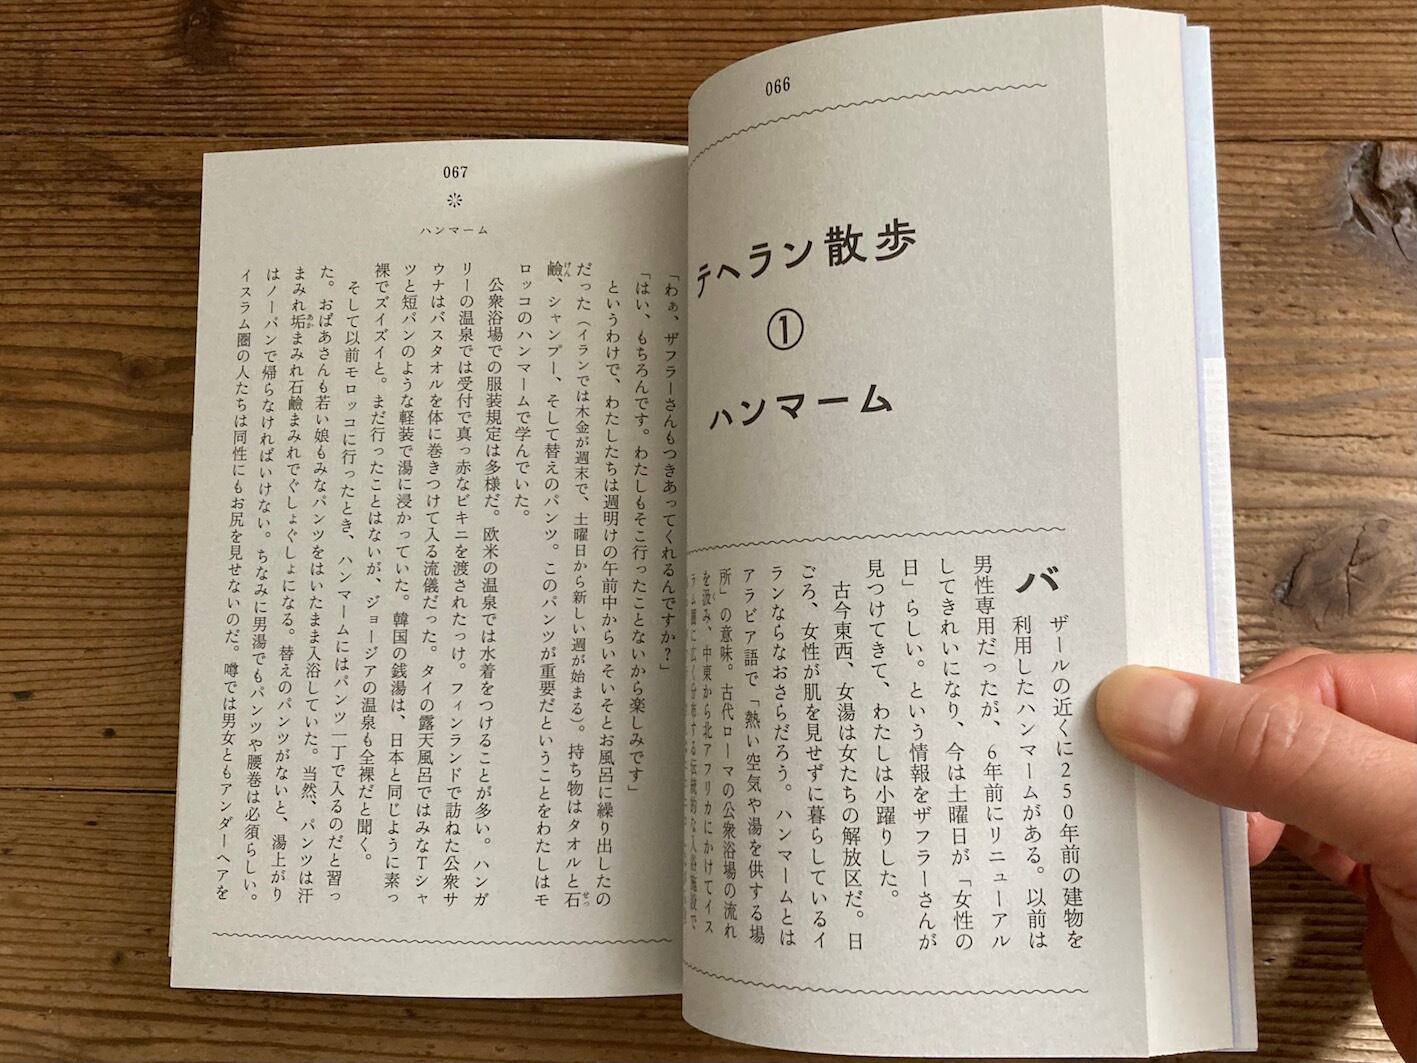 066
テヘラン散歩
①
ハンマーム
バザールの近くに250年前の建物を
利用したハンマームがある。以前は
男性専用だったが、6年前にリニューアル
してきれいになり、今は土曜日が「女性の
日」らしい。という情報をザフラーさんが
見つけてきて、わたしは小躍りした。
古今東西、女湯は女たちの解放区だ。日
ごろ、女性が肌を見せずに暮らしているイ
ランならなおさらだろう。ハンマームとは
アラビア語で「熱い空気や湯を供する場
所」の意味。古代ローマの公衆浴場の流れ
を汲み、中東から北アフリカにかけてイス
ラム圏に広く分布する伝統的な入浴施設で
067
ハンマーム
「わぁ、ザフラーさんもつきあってくれるんですか?」
「はい、もちろんです。わたしもそこ行ったことないから楽しみです」
というわけで、わたしたちは週明けの午前中からいそいそとお風呂に繰り出したの
だった(イランでは木金が週末で、土曜日から新しい週が始まる)。持ち物はタオルと石
鹼、シャンプー、そして替えのパンツ。このパンツが重要だということをわたしはモ
ロッコのハンマームで学んでいた。
公衆浴場での服装規定は多様だ。欧米の温泉では水着をつけることが多い。ハンガ
リーの温泉では受付で真っ赤なビキニを渡されたっけ。フィンランドで訪ねた公衆サ
ウナはバスタオルを体に巻きつけて入る流儀だった。タイの露天風呂ではみなTシャ
ツと短パンのような軽装で湯に浸かっていた。韓国の銭湯は、日本と同じように素っ
裸でズイズイと。まだ行ったことはないが、ジョージアの温泉も全裸だと聞く。
そして以前モロッコに行ったとき、ハンマームにはパンツ一丁で入るのだと習っ
た。おばあさんも若い娘もみなパンツをはいたまま入浴していた。当然、パンツは汗
まみれ垢まみれ石鹼まみれでぐしょぐしょになる。替えのパンツがないと、湯上がり
はノーパンで帰らなければいけない。ちなみに男湯でもパンツや腰巻は必須らしい。
イスラム圏の人たちは同性にもお尻を見せないのだ。噂では男女ともアンダーヘアを